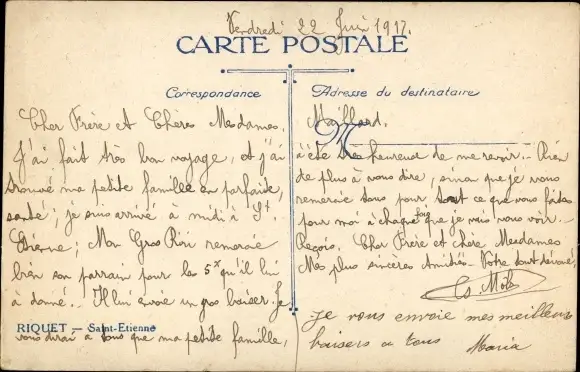 Vendredi 22 Juin 1917.
CARTE POSTALE
Correspondance
Cher Frère et Chères Mesdames.
J'ai fait très bon voyage, et j'ai
trouvé ma petite famille en parfaite
santé; je suis arrivé à midi à St.
Etienne; Mon Gros Riri remercie
bien son parrain pour les 5x qu'il lui
à donné.. Il lui envoie un gros baiser. Je
RIQUET — Saint-Etienne
vous dirai à tous que ma petite famille,
Adresse du destinataire
Maillard.
M
à été très heureuse de me revoir.. Rien
de plus à vous dire, sinon que je vous
remercie tous pour tout ce que vous faites
pour moi à chaque fois que je vais vous voir..
Reçois, Cher Frère et chère Mesdames
Mes plus sincères Amitiés Votre tout dévoué,
Je vous envoie mes meilleurs
baisers a tous Maria